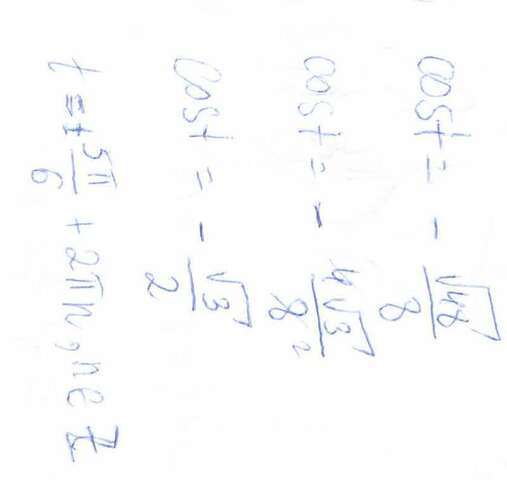 cos t = - √48/8
cos t = - 4√3/8 2
cos t = - √3/2
t = ± 5π/6 + 2πn, n ∈ Z